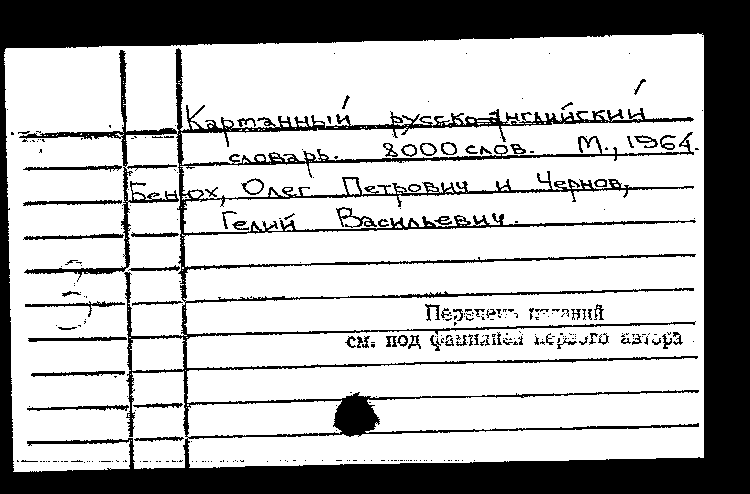 Карманный русско-английский
словарь. 8000 слов. М., 1964.
Бенюх, Олег Петрович и Чернов,
Гелий Васильевич.
3
Перечень изданий
см. под фамилией первого автора